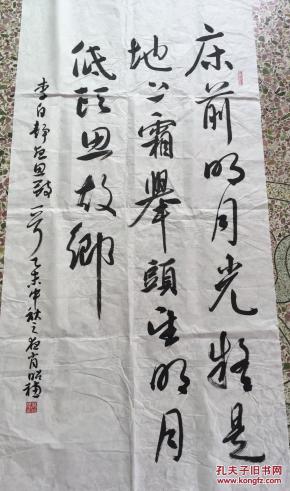 床前明月光疑是
地上霜舉頭望明月
低頭思故鄉
李白静夜思一首乙未中秋之夜肖昭穗
孔夫子旧书网